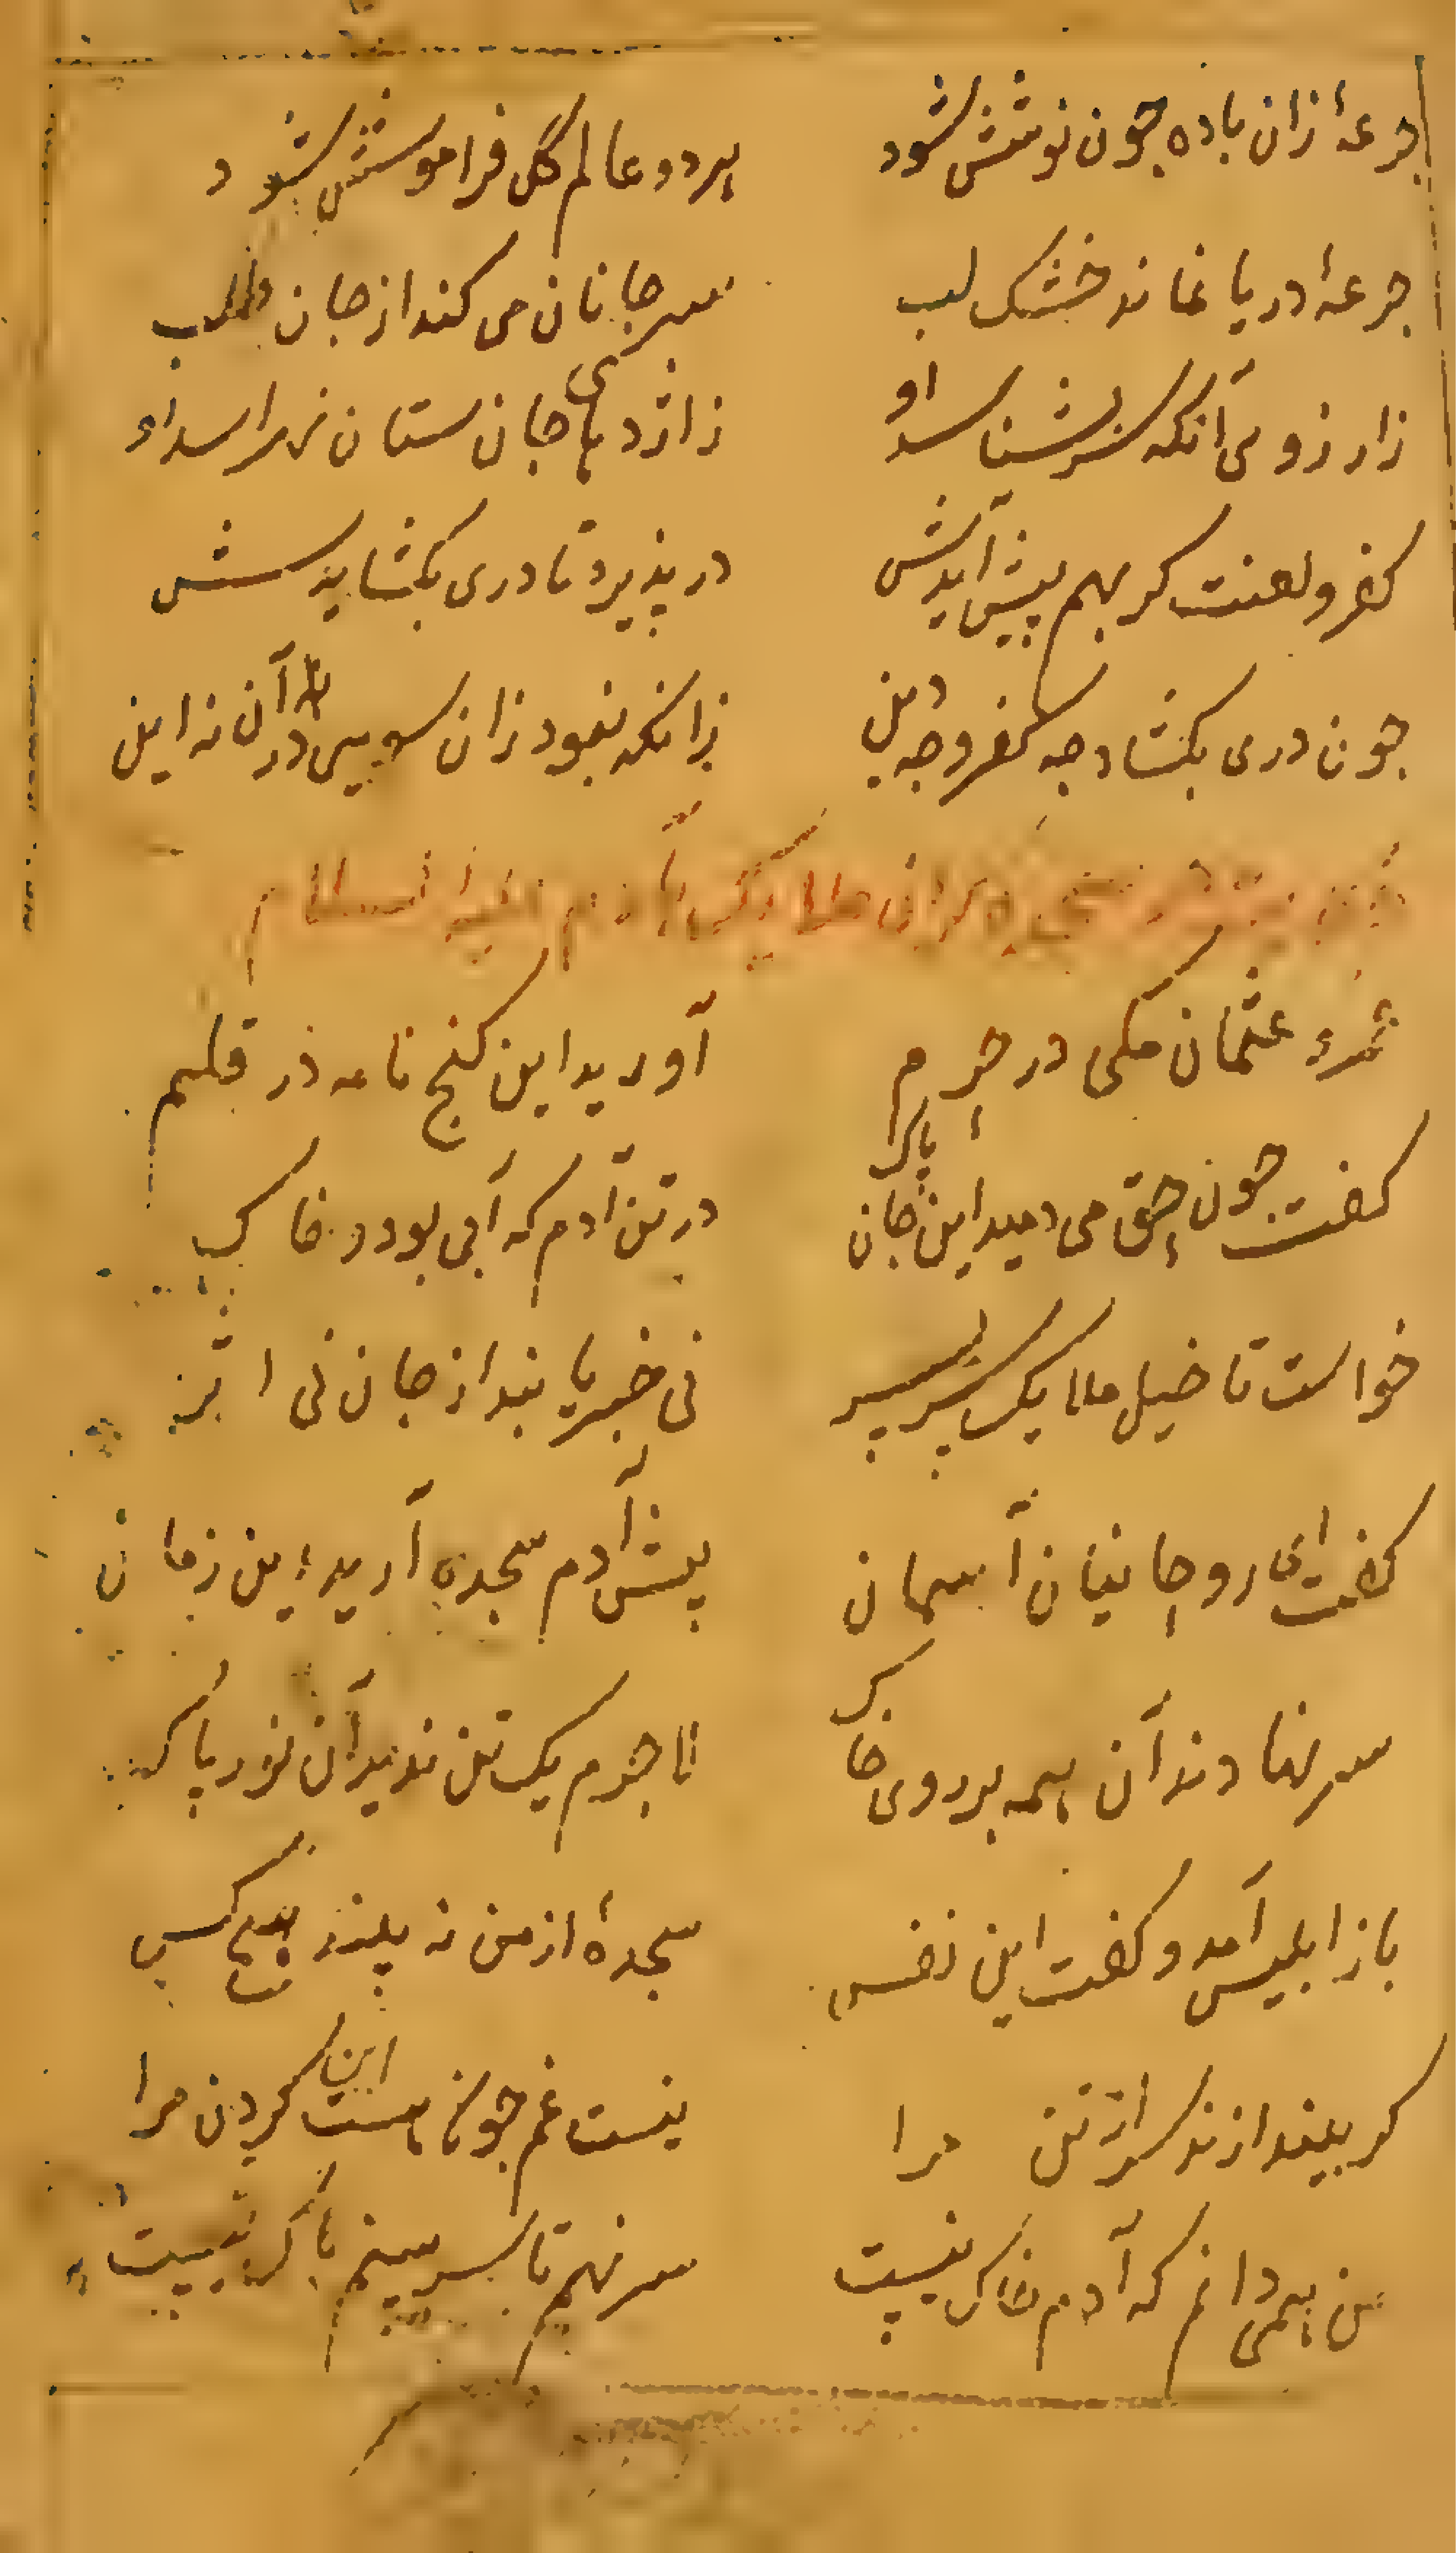 جرعهٔ زان باده چون نوشش شود هر دو عالم کل فراموشش شود
جرعهٔ دریا نماند خشک لب سر جانان می کند از جان طلب
زارزوی آنکه سر بشناسد او ز اژدهای جان ستان نهراسد او
کفر و لعنت کر بهم پیش آیدش در پذیرد تا دری بکشایدش
جون دری بکشاد جه کفر و جه دین زانکه نبود زان سوی در آن نه این
عثمان مکی در حرم آورید این کنج نامه در قلم
کفت جون حق می دمید این جان پاک در تن آدم که آبی بود و خاک
خواست تا خیل ملایک سر بسر نی خبر یابند از جان نی اثر
کفت ای روحانیان آسمان پیش آدم سجده آرید این زمان
سر نهادند آن همه بر روی خاک لاجرم یک تن ندید آن نور پاک
باز ابلیس آمد و کفت این نفس سجدهٔ از من نه بیند هیچ کس
کر بیندازند سر از تن مرا نیست غم جون هست این کردن مرا
من همی دانم که آدم خاک نیست سر نهم تا سر ببینم باک نیست